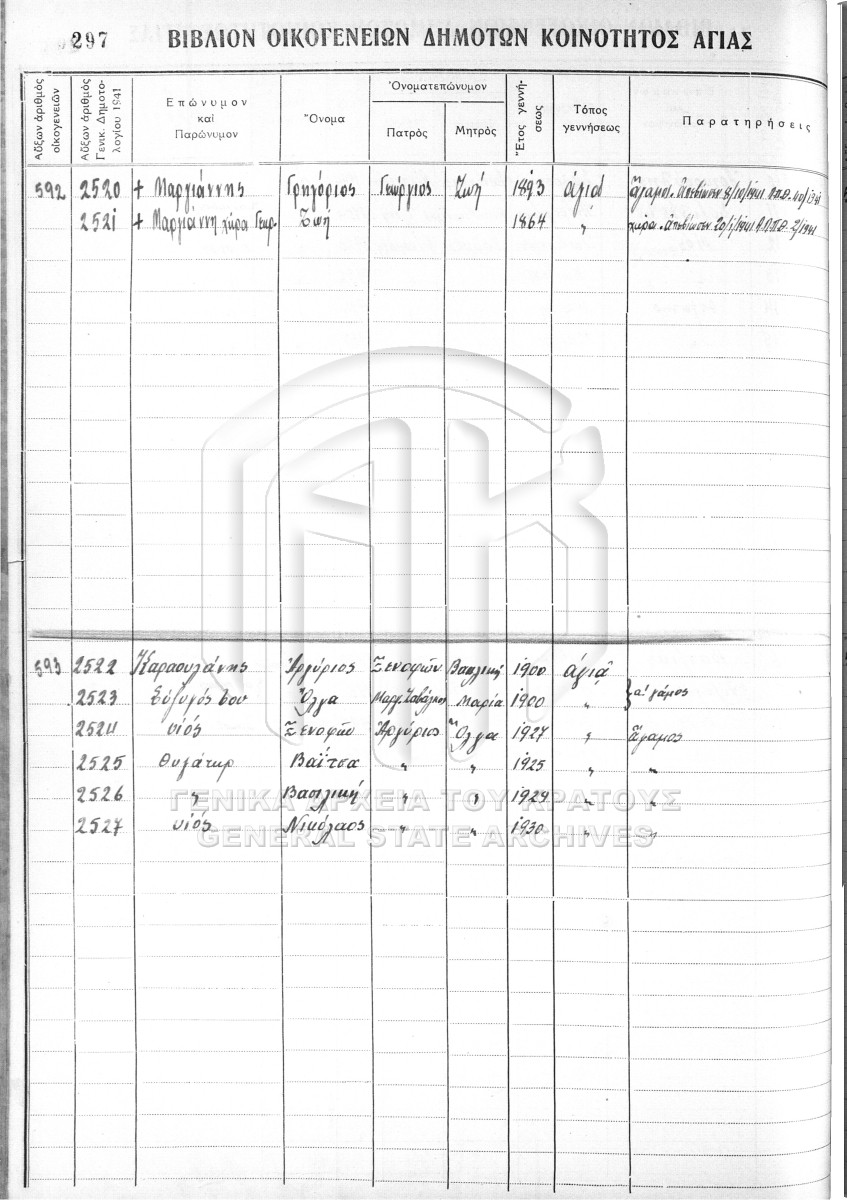 297 ΒΙΒΛΙΟΝ ΟΙΚΟΓΕΝΕΙΩΝ ΔΗΜΟΤΩΝ ΚΟΙΝΟΤΗΤΟΣ ΑΓΙΑΣ
Αὔξων ἀριθμὸς οἰκογενειῶν
Αὔξων ἀριθμὸς Γενικ. Δημοτολογίου 1941
Ἐπώνυμον καὶ Παρώνυμον
Ὄνομα
Ὀνοματεπώνυμον
Πατρὸς Μητρὸς
Ἔτος γεννήσεως
Τόπος γεννήσεως
Παρατηρήσεις
592 2520 + Μαργιάννης Γρηγόριος Γεώργιος Ζωή 1893 ἁγιά ἄγαμος. ἀπεβίωσεν 8/10/1941
2521 + Μαργιάννη χήρα Γεωρ. Ζωή 1864 " χήρα. ἀπεβίωσεν 20/1/1941 Λ.Π.Π.Θ. 2/1941
593 2522 Καραουλάνης Ἀργύριος Ξενοφῶν Βασιλική 1900 ἁγιά
2523 Σύζυγός του Ὄλγα Μαρία 1900 " } α' γάμος
2524 υἱός Ξενοφῶν Ἀργύριος Ὄλγα 1927 " ἄγαμος
2525 Θυγάτηρ Βαΐτσα " " 1925 " "
2526 " Βασιλική " " 1929 " "
2527 υἱός Νικόλαος " " 1930 " "
ΓΕΝΙΚΑ ΑΡΧΕΙΑ ΤΟΥ ΚΡΑΤΟΥΣ
GENERAL STATE ARCHIVES